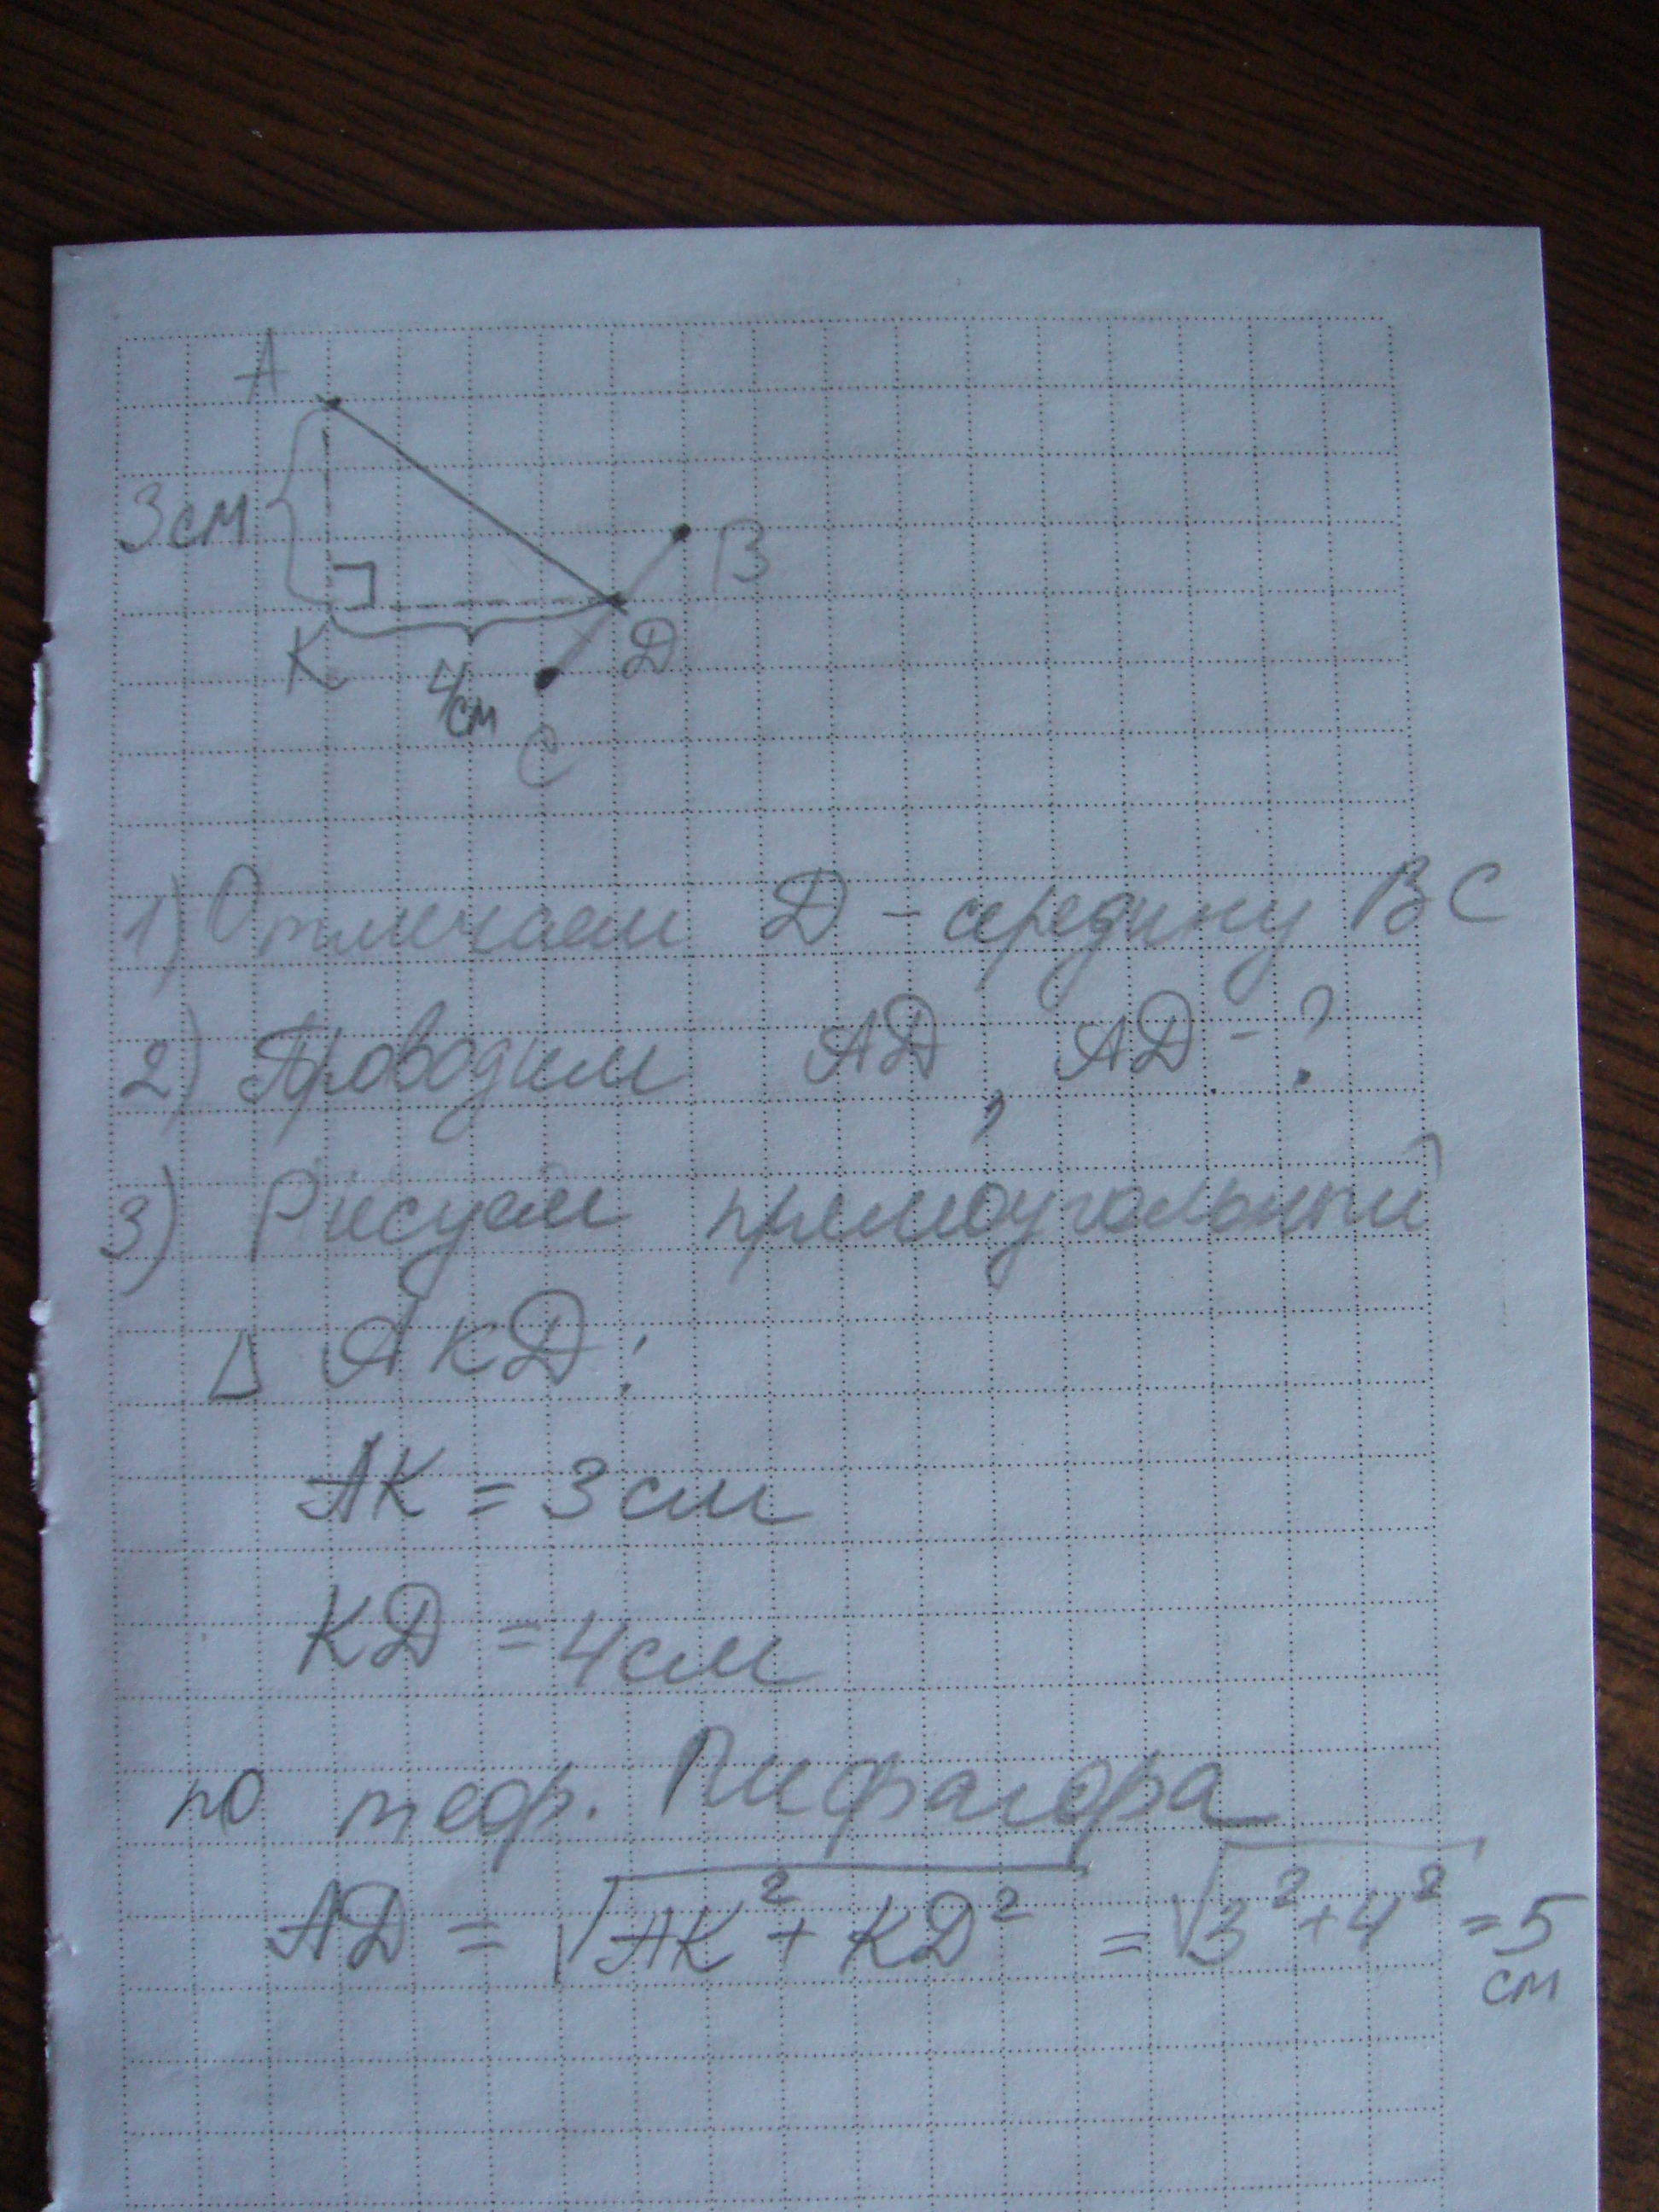 A
3см
B
K
D
4см
C
1) Отмечаем D - середину BC
2) Проводим AD, AD - ?
3) Рисуем прямоугольный
Δ AKD:
AK = 3см
KD = 4см
по теор. Пифагора
AD = √AK² + KD² = √3² + 4² = 5
см